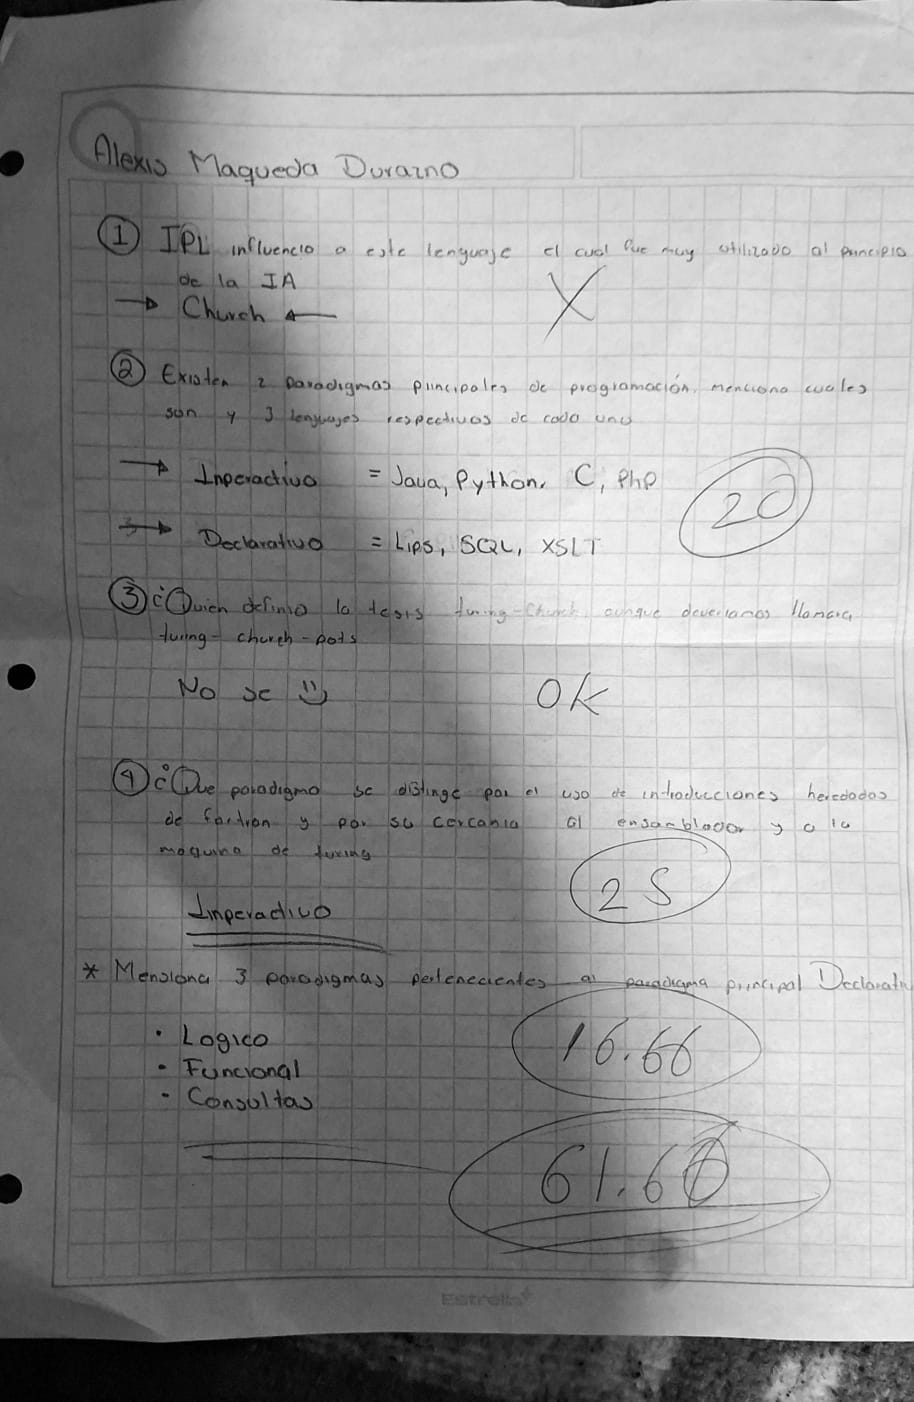 Alexis Maqueda Durazno
① IPL influencio a este lenguaje el cual fue muy utilizado al principio
de la IA
→ Church ←
X
② Existen 2 paradigmas principales de programación, menciona cuales
son y 3 lenguajes respectivos de cada uno
→ Imperactivo = Java, Python, C, PhP
20
→ Declarativo = Lips, SQL, XSLT
③ ¿Quien definio la tesis turing-Church, aunque deveriamos llamarla
turing-church-pots
No se
OK
④ ¿Que paradigma se distinge por el uso de introducciones heredadas
de fortran y por su cercania al ensamblador y a la
maquina de turing
25
Imperadivo
* Mensiona 3 paradigmas pertenecientes al paradigma principal Declarativ
• Logico
16.66
• Funcional
• Consultas
61.66
Estrella